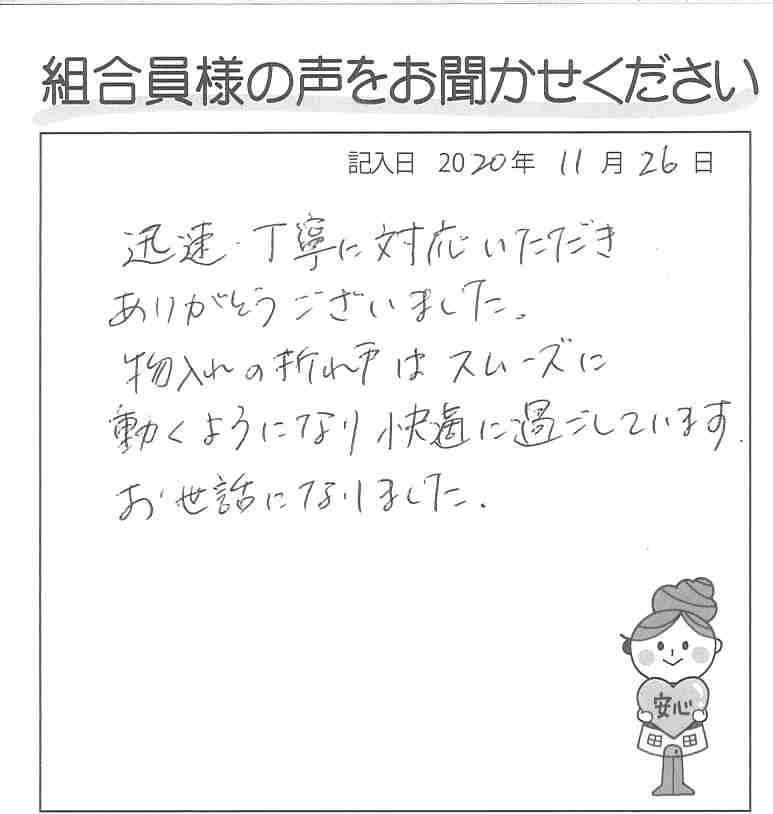 組合員様の声をお聞かせください
記入日 2020年 11月26日
迅速・丁寧に対応いただき
ありがとうございました。
物入れの折れ戸はスムーズに
動くようになり快適に過ごしています.
お世話になりました.
安心